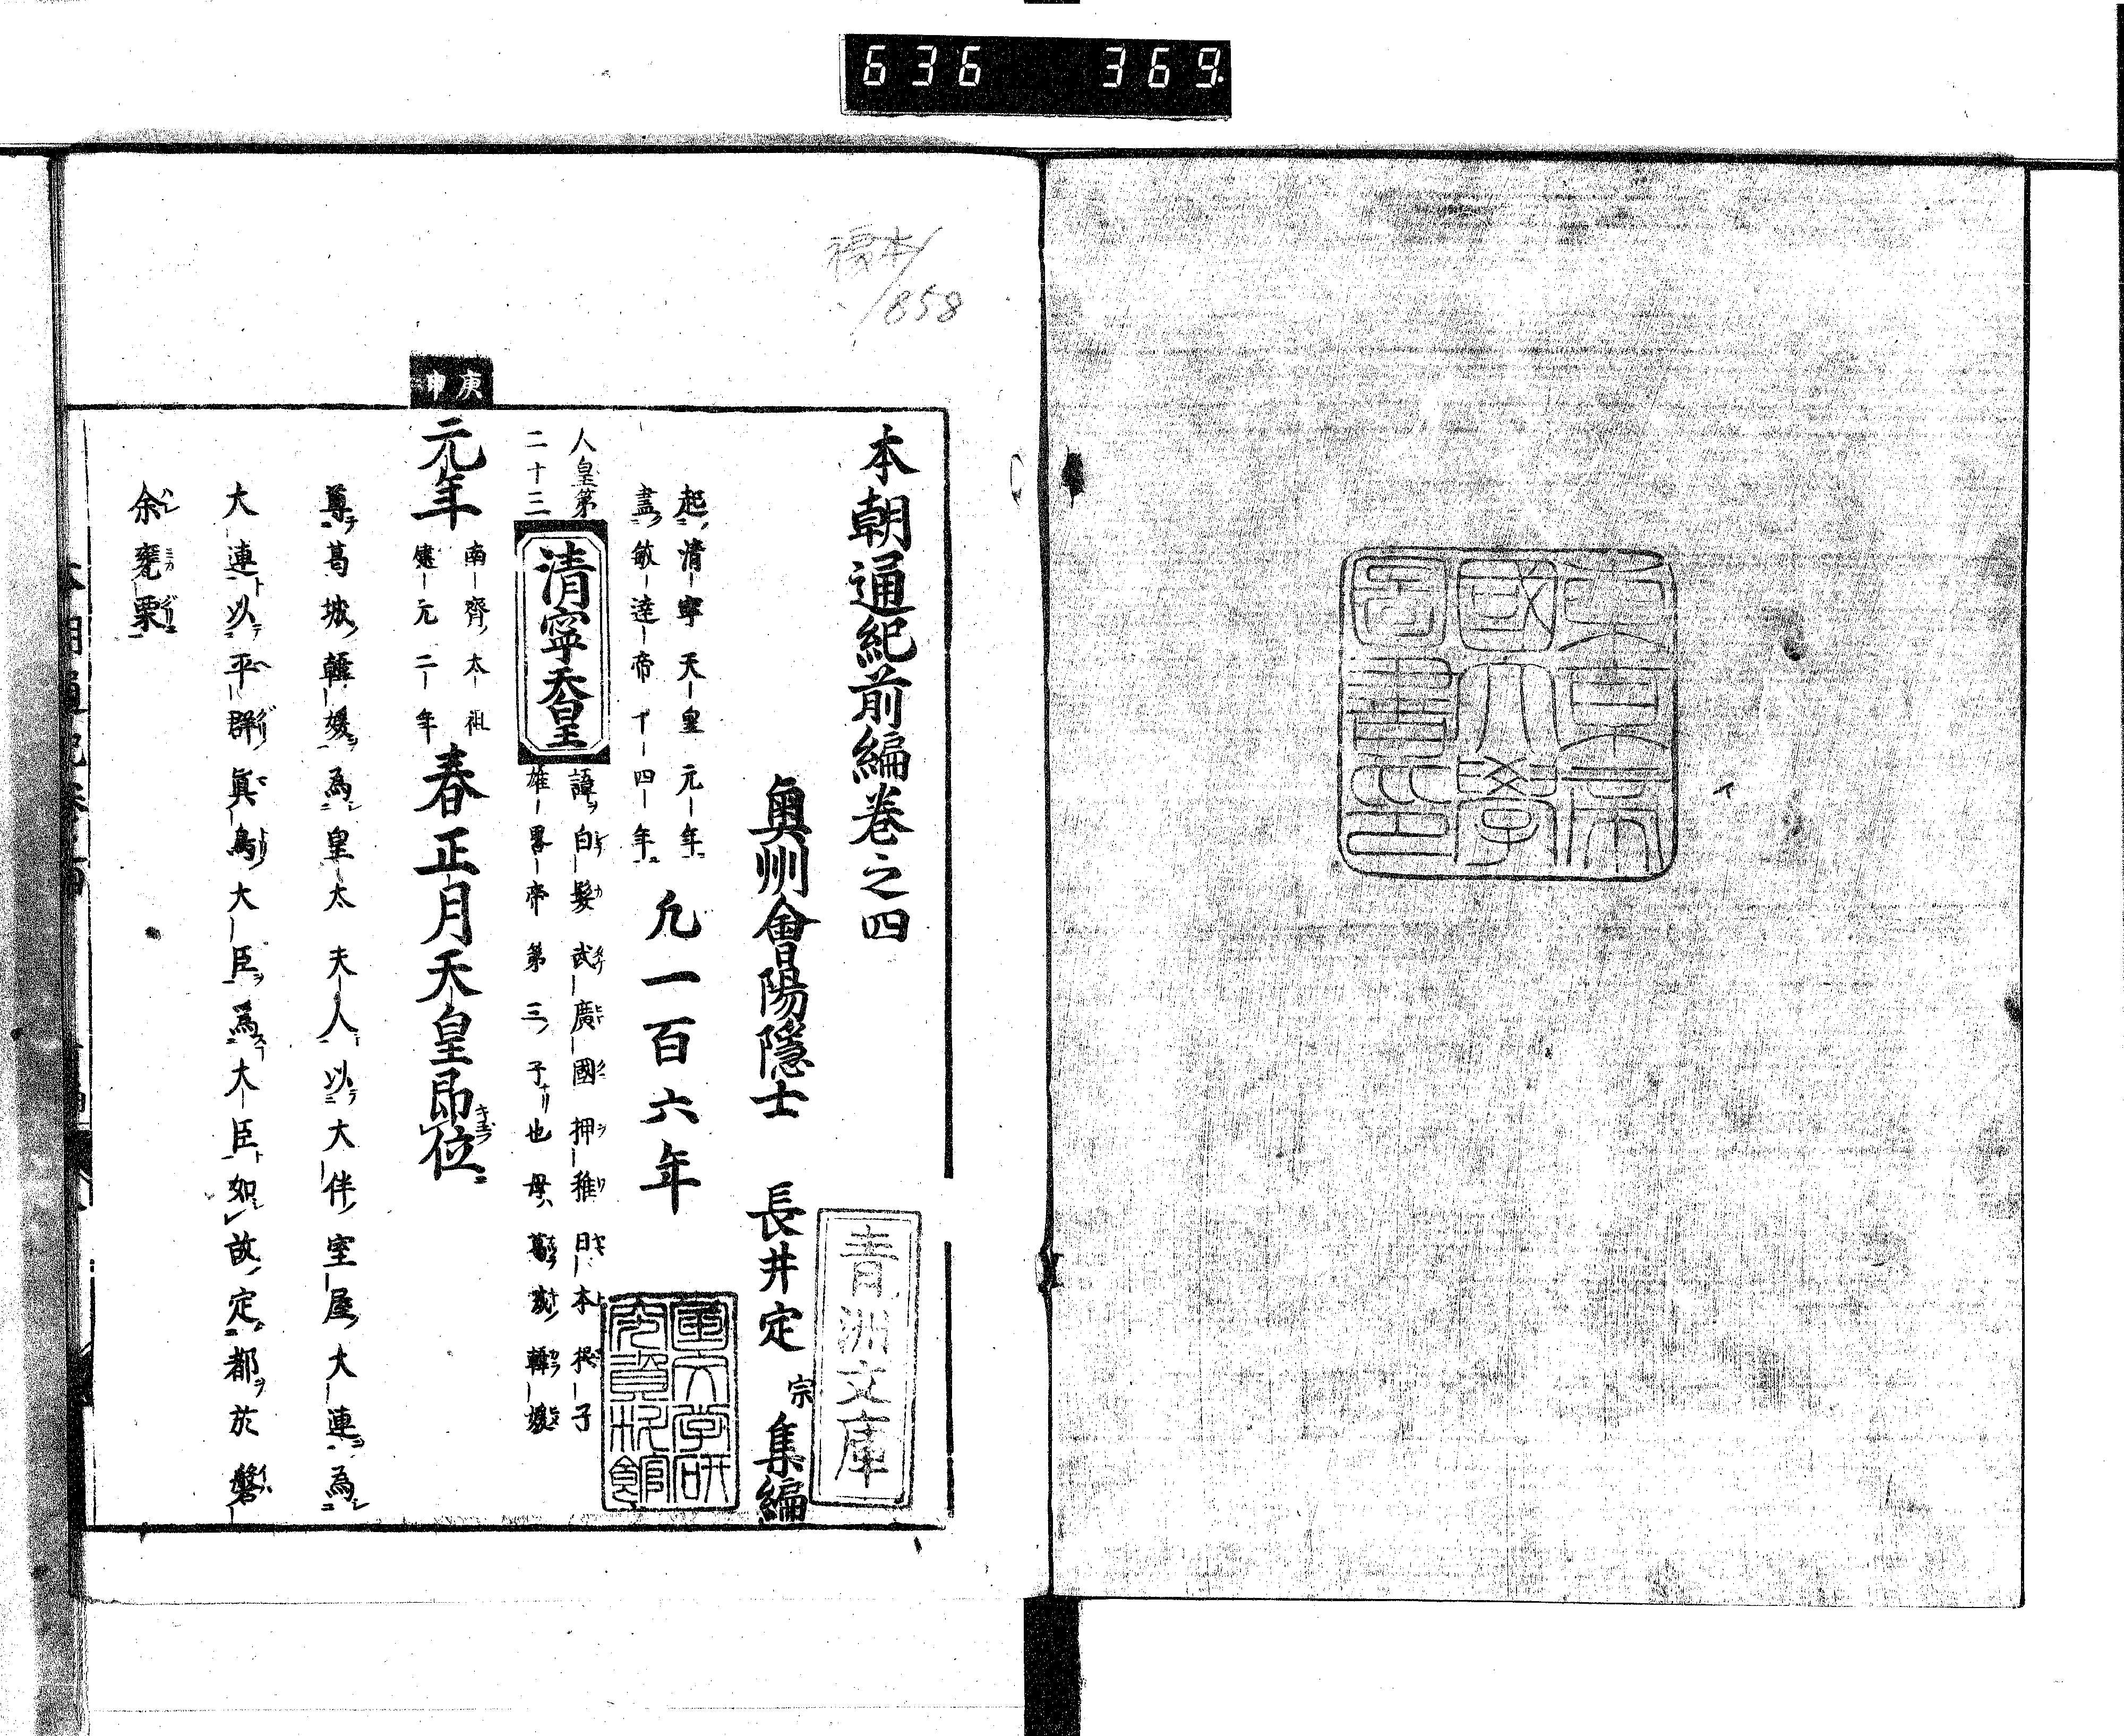 636 369
東京帝
國大學
圖書之印
橋本/
/858
本朝通紀前編卷之四
奥州會陽隱士 長井定宗集編
青洲文庫
起清寧天皇元年
盡敏達帝十四年
凡一百六年
人皇第
二十三
清寧天皇
諱白髮武廣國押稚日本根子
雄畧帝第三子也母葛城韓媛
庚申
元年
南齊太祖
建元二年
春正月天皇即位
尊葛城韓媛為皇太夫人以大伴室屋大連為
大連以平群眞鳥大臣爲大臣如故定都於磐
余甕栗